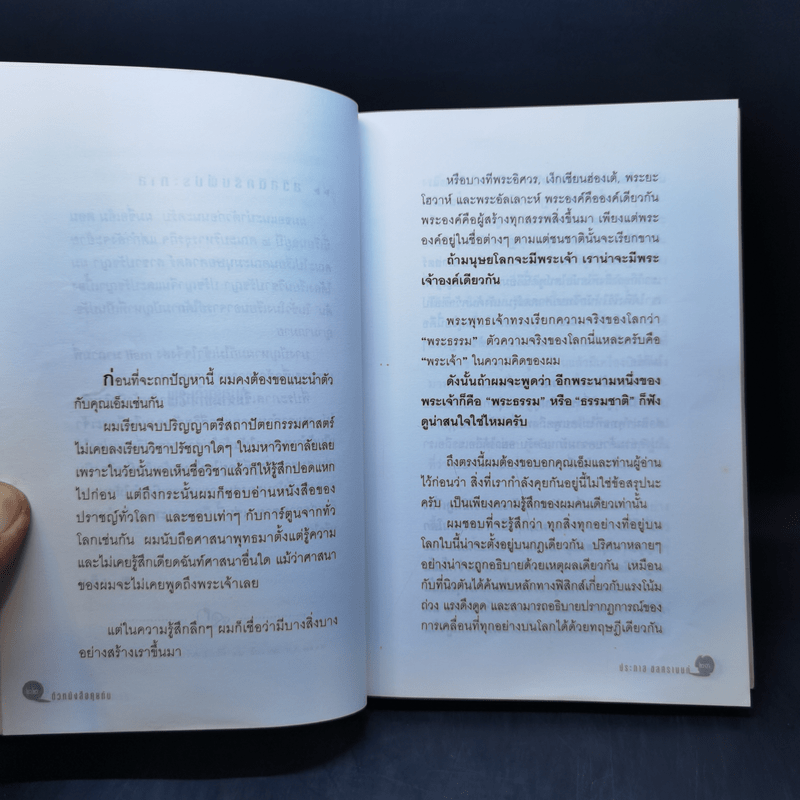 ก่อนที่จะถกปัญหานี้ ผมคงต้องขอแนะนำตัว
กับคุณเอ็มเช่นกัน
ผมเรียนจบปริญญาตรีสถาปัตยกรรมศาสตร์
ไม่เคยลงเรียนวิชาปรัชญาใดๆ ในมหาวิทยาลัยเลย
เพราะในวัยนั้นพอเห็นชื่อวิชาแล้วก็ให้รู้สึกปอดแหก
ไปก่อน แต่ถึงกระนั้นผมก็ชอบอ่านหนังสือของ
ปราชญ์ทั่วโลก และชอบเท่าๆ กับการ์ตูนจากทั่ว
โลกเช่นกัน ผมนับถือศาสนาพุทธมาตั้งแต่รู้ความ
และไม่เคยรู้สึกเดียดฉันท์ศาสนาอื่นใด แม้ว่าศาสนา
ของผมจะไม่เคยพูดถึงพระเจ้าเลย
แต่ในความรู้สึกลึกๆ ผมก็เชื่อว่ามีบางสิ่งบาง
อย่างสร้างเราขึ้นมา
หรือบางทีพระอิศวร, เง็กเซียนฮ่องเต้, พระยะ
โฮวาห์ และพระอัลเลาะห์ พระองค์คือองค์เดียวกัน
พระองค์คือผู้สร้างทุกสรรพสิ่งขึ้นมา เพียงแต่พระ
องค์อยู่ในชื่อต่างๆ ตามแต่ชนชาตินั้นจะเรียกขาน
ถ้ามนุษย์โลกจะมีพระเจ้า เราน่าจะมีพระ
เจ้าองค์เดียวกัน
พระพุทธเจ้าทรงเรียกความจริงของโลกว่า
“พระธรรม” ตัวความจริงของโลกนี่แหละครับคือ
“พระเจ้า” ในความคิดของผม
ดังนั้นถ้าผมจะพูดว่า อีกพระนามหนึ่งของ
พระเจ้าก็คือ “พระธรรม” หรือ “ธรรมชาติ” ก็ฟัง
ดูน่าสนใจใช่ไหมครับ
ถึงตรงนี้ผมต้องขอบอกคุณเอ็มและท่านผู้อ่าน
ไว้ก่อนว่า สิ่งที่เรากำลังคุยกันอยู่นี้ไม่ใช่ข้อสรุปนะ
ครับ เป็นเพียงความรู้สึกของผมคนเดียวเท่านั้น
ผมชอบที่จะรู้สึกว่า ทุกสิ่งทุกอย่างที่อยู่บน
โลกใบนี้น่าจะตั้งอยู่บนกฎเดียวกัน ปริศนาหลายๆ
อย่างน่าจะถูกอธิบายด้วยเหตุผลเดียวกัน เหมือน
กับที่นิวตันได้ค้นพบหลักทางฟิสิกส์เกี่ยวกับแรงโน้ม
ถ่วง แรงดึงดูด และสามารถอธิบายปรากฏการณ์ของ
การเคลื่อนที่ทุกอย่างบนโลกได้ด้วยทฤษฎีเดียวกัน